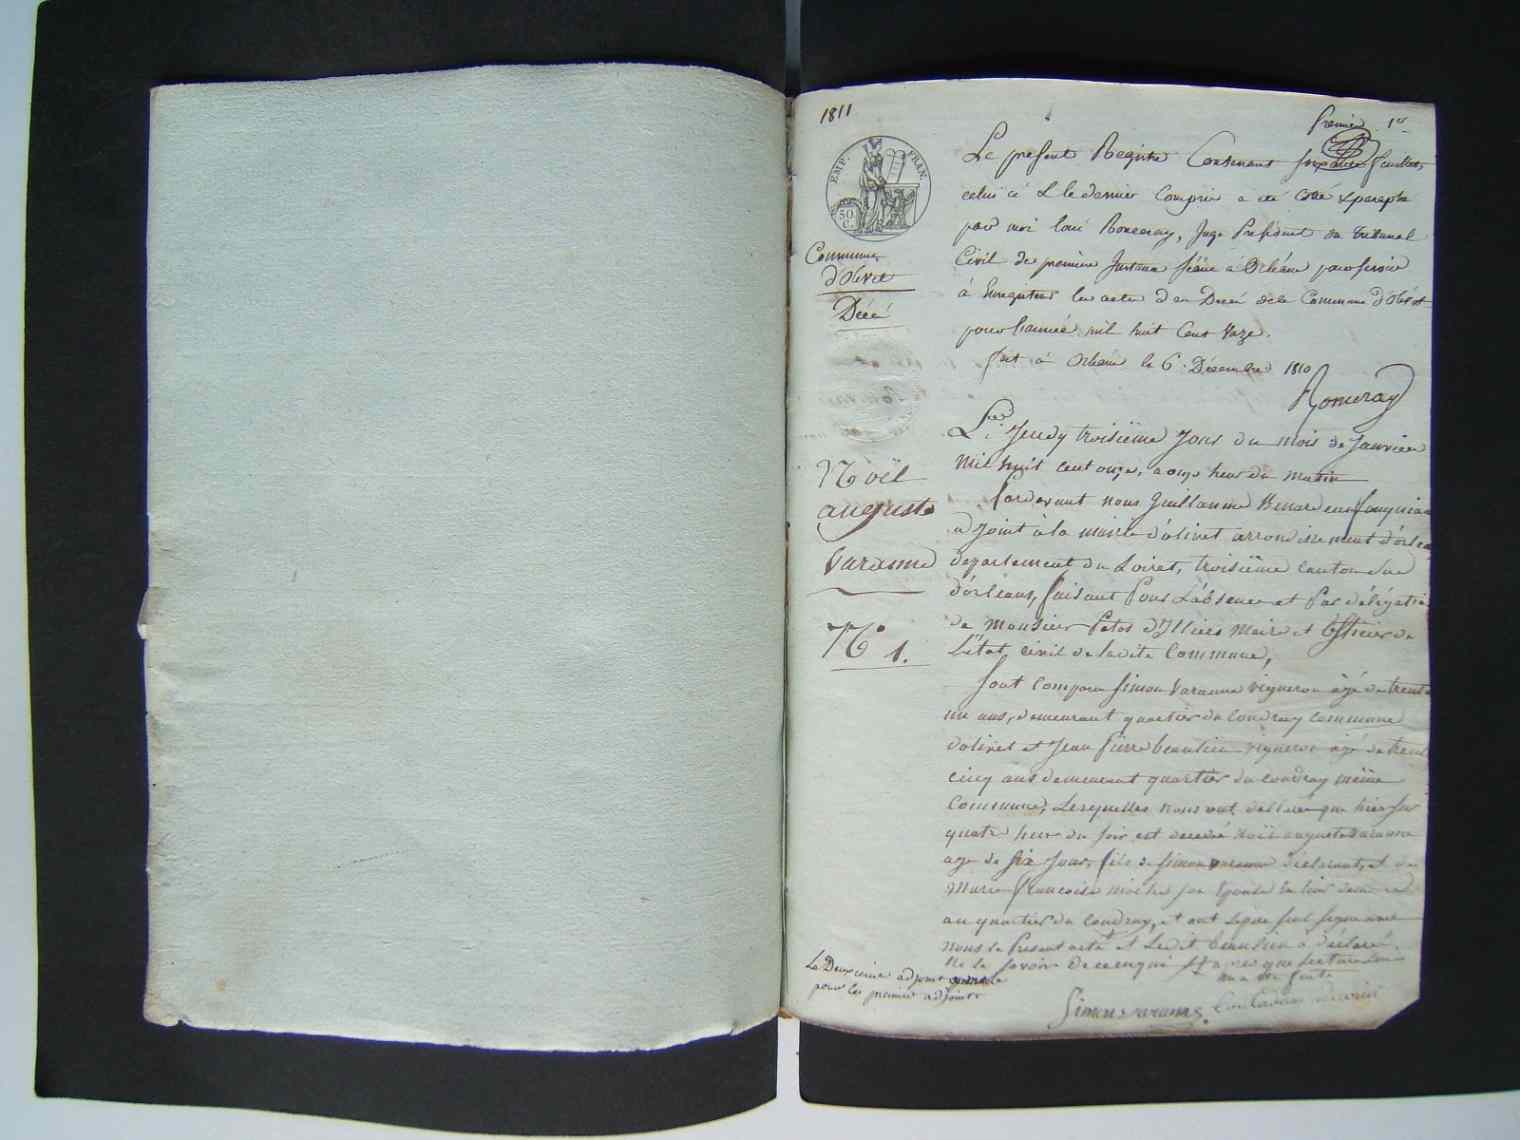 1811
Premier 1er
EMP. FRAN.
50 C.
Le present Registre Contenant feuillets,
celui ci & le dernier Compris a été Cotté & paraphé
par moi Romeray, Juge President du Tribunal
Civil de premiere Instance séant à Orléans pour servir
à Enregistrer les actes de Décès de la Commune d'Olivet
pour l'année mil huit Cent onze.
fait à Orléans le 6 Décembre 1810
Romeray
Commune
d'Olivet
Décès
Noël
auguste
Varanne
No 1.
Le Jeudy troisiëme Jour du mois de Janvier
mil huit cent onze, a onze heur du matin
Pardevant nous Guillaume
adjoint à la mairie d'olivet arrondissement d'orleans
departement du Loiret, troisiëme canton
d'orleans, faisant Pour L'absence et Par délégation
de monsieur d'Illiers maire et officier de
L'état civil de ladite Commune,
Sont comparu Simon Varanne vigneron âgé de trente
un ans, demeurant quartier du coudray commune
d'olivet et Jean Pierre beaulieu vigneron âgé de trente
cinq ans demeurant quartier du coudray même
Commune, Lesquelles nous ont declaré que hier sur
quatre heur du soir est decedé noël auguste Varanne
age de six Jour, fils de Simon Varanne déclarant, et de
Marie françoise son Epouse
au quartier du coudray, et ont signé avec
nous le Present acte et Ledit beaulieu a déclaré
ne le savoir de ce enquis après que Lecture
en a été faite
Le Deuxieme adjoint
pour le premier adjoint
Simon Varanne